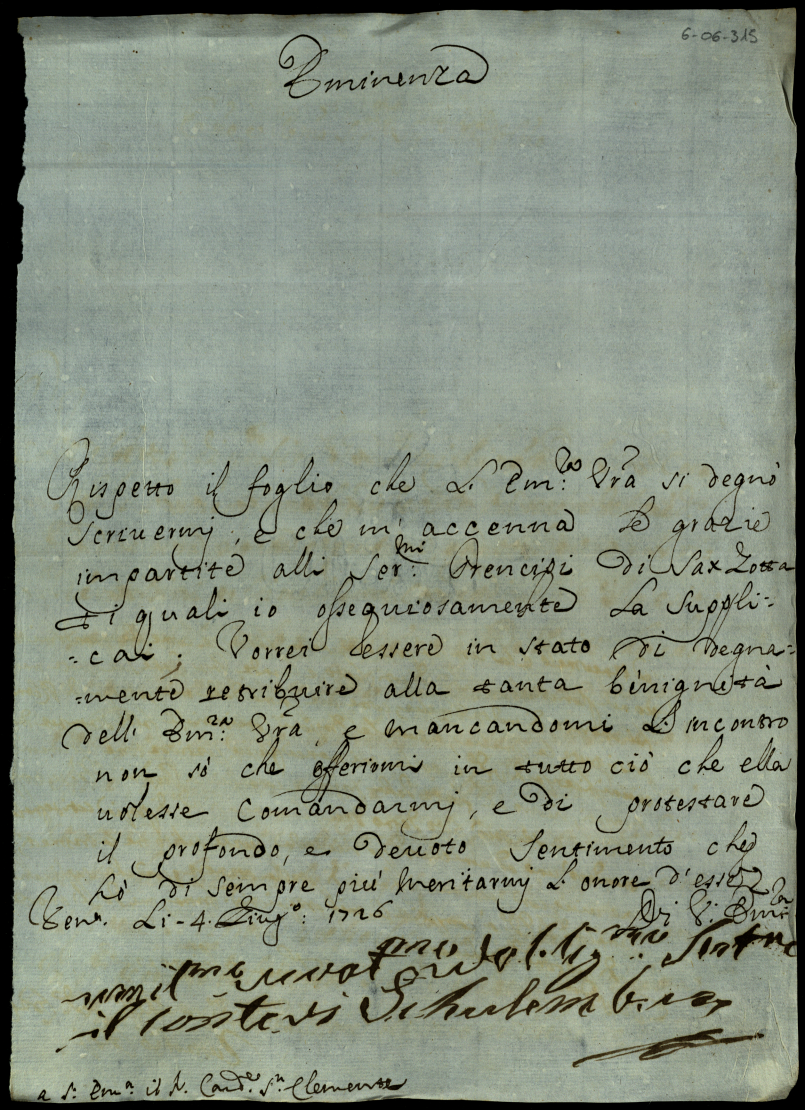 6-06-315
Eminenza
Rispetto il foglio che L'Em:za Vra si degnò
scriuermj, e che m'accenna le grazie
impartite alli Ser:mi Prencipi di Sax Zotta
di quali io ossequiosamente La suppli=
=cai; Vorrei essere in stato di degna=
=mente retribuire alla tanta benignità
dell' Em:za Vra, e mancandomi L'incontro
non sò che offerirmi in tutto ciò che ella
uolesse Comandarmj, e di protestare
il profondo, e deuoto sentimento che
hò di sempre più meritarmj L'onore d'essere
Ven.a Li-4. Giug.o: 1726
Di V: Em:za
umil.mo deuot.mo obblig.mo Seru.re
il Conte di Schulemburg
a S: Em.a il S. Card.e S.n Clemente